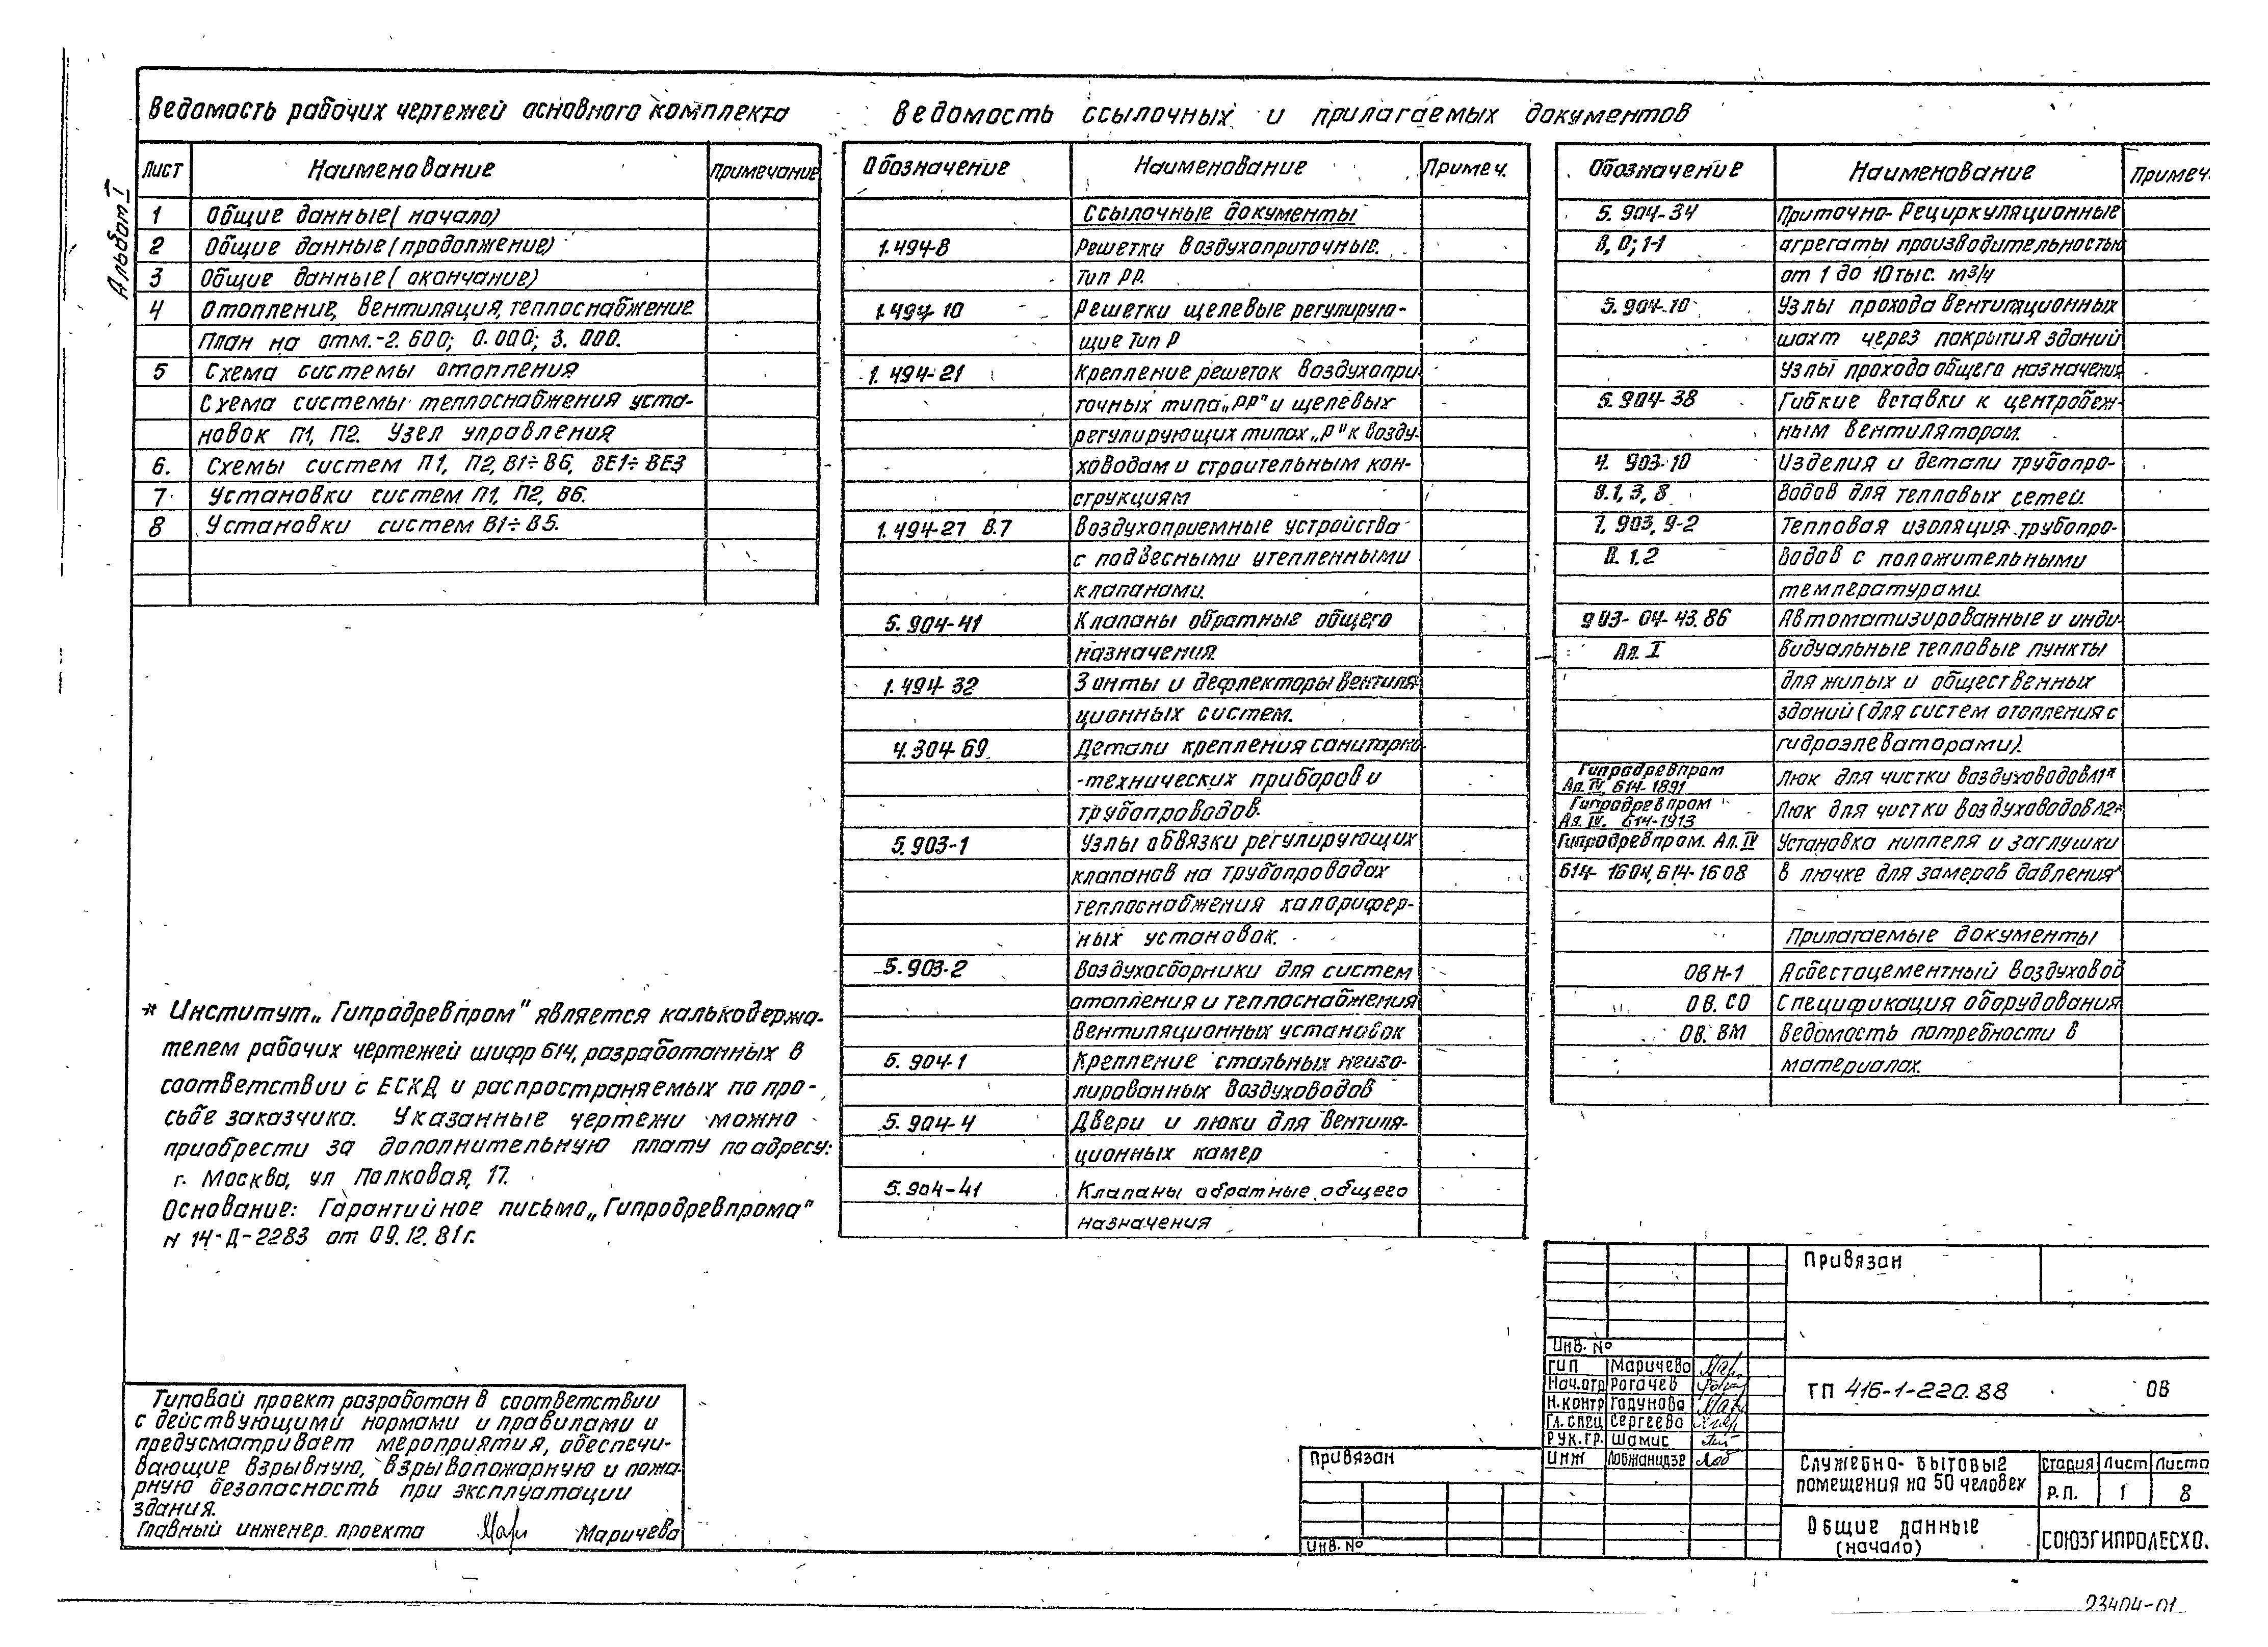 Альбом I
Ведомость рабочих чертежей основного комплекта
Лист Наименование Примечание
1 Общие данные (начало)
2 Общие данные (продолжение)
3 Общие данные (окончание)
4 Отопление, вентиляция, теплоснабжение
План на отм.-2.600; 0.000; 3.000.
5 Схема системы отопления
Схема системы теплоснабжения уста-
новок П1, П2. Узел управления
6. Схемы систем П1, П2, В1÷В6, ВЕ1÷ВЕ3
7 Установки систем П1, П2, В6.
8 Установки систем В1÷В5.
* Институт „Гипродревпром" является калькодержа-
телем рабочих чертежей шифр 614, разработанных в
соответствии с ЕСКД и распространяемых по про-
сьбе заказчика. Указанные чертежи можно
приобрести за дополнительную плату по адресу:
г. Москва, ул Палковая, 17.
Основание: Гарантийное письмо „Гипродревпрома"
N 14-Д-2283 от 09.12.81г.
Типовой проект разработан в соответствии
с действующими нормами и правилами и
предусматривает мероприятия, обеспечи-
вающие взрывную, взрывопожарную и пожа-
рную безопасность при эксплуатации
здания.
Главный инженер проекта Маричева
Ведомость ссылочных и прилагаемых документов
Обозначение Наименование Примеч.
Ссылочные документы
1.494-8 Решетки воздухоприточные.
Тип РР.
1.494-10 Решетки щелевые регулирую-
щие Тип Р
1.494-21 Крепление решеток воздухопри-
точных типа „РР" и щелевых
регулирующих типах „Р" к возду-
ховодам и строительным кон-
струкциям
1.494-27 В.7 Воздухоприемные устройства
с подвесными утепленными
клапанами.
5.904-41 Клапаны обратные общего
назначения.
1.494-32 Зонты и дефлекторы вентиля-
ционных систем.
4.304-69 Детали крепления санитарно
-технических приборов и
трубопроводов.
5.903-1 Узлы обвязки регулирующих
клапанов на трубопроводах
теплоснабжения калорифер-
ных установок.
5.903-2 Воздухосборники для систем
отопления и теплоснабжения
вентиляционных установок
5.904-1 Крепление стальных неизо-
лированных воздуховодов
5.904-4 Двери и люки для вентиля-
ционных камер
5.904-41 Клапаны обратные общего
назначения
Обозначение Наименование Примеч.
5.904-34 Приточно-Рециркуляционные
В,0;1-1 агрегаты производительностью
от 1 до 10 тыс. м3/ч
5.904-10 Узлы прохода вентиляционных
шахт через покрытия зданий
Узлы прохода общего назначения
5.904-38 Гибкие вставки к центробеж-
ным вентиляторам.
4.903-10 Изделия и детали трубопро-
В.1,3,8 водов для тепловых сетей.
7.903.9-2 Тепловая изоляция трубопро-
В.1.2 водов с положительными
температурами.
903-04-43.86 Автоматизированные и инди-
Ал. I видуальные тепловые пункты
для жилых и общественных
зданий (для систем отопления с
гидроэлеваторами).
Гипродревпром
Ал. IV, 614-1891 Люк для чистки воздуховодов Л1*
Гипродревпром
Ал. IV. 614-1913 Люк для чистки воздуховодов Л2*
Гипродревпром. Ал. IV Установка ниппеля и заглушки
614-1604, 614-1608 в лючке для замеров давления*
Прилагаемые документы
ОВН-1 Асбестоцементный воздуховод
ОВ.СО Спецификация оборудования
ОВ.ВМ Ведомость потребности в
материалах.
Привязан
Инв. №
Привязан
Инв. №
ГИП Маричева
Нач.отд Рогачев
Н.контр Годунова
Гл.спец Сергеева
Рук.гр. Шамис
Инж Лобжанидзе
ТП 416-1-220.88 ОВ
Служебно-бытовые
помещения на 50 человек
Стадия Лист Листо
Р.П. 1 8
Общие данные
(начало)
СОЮЗГИПРОЛЕСХО.
23404-01